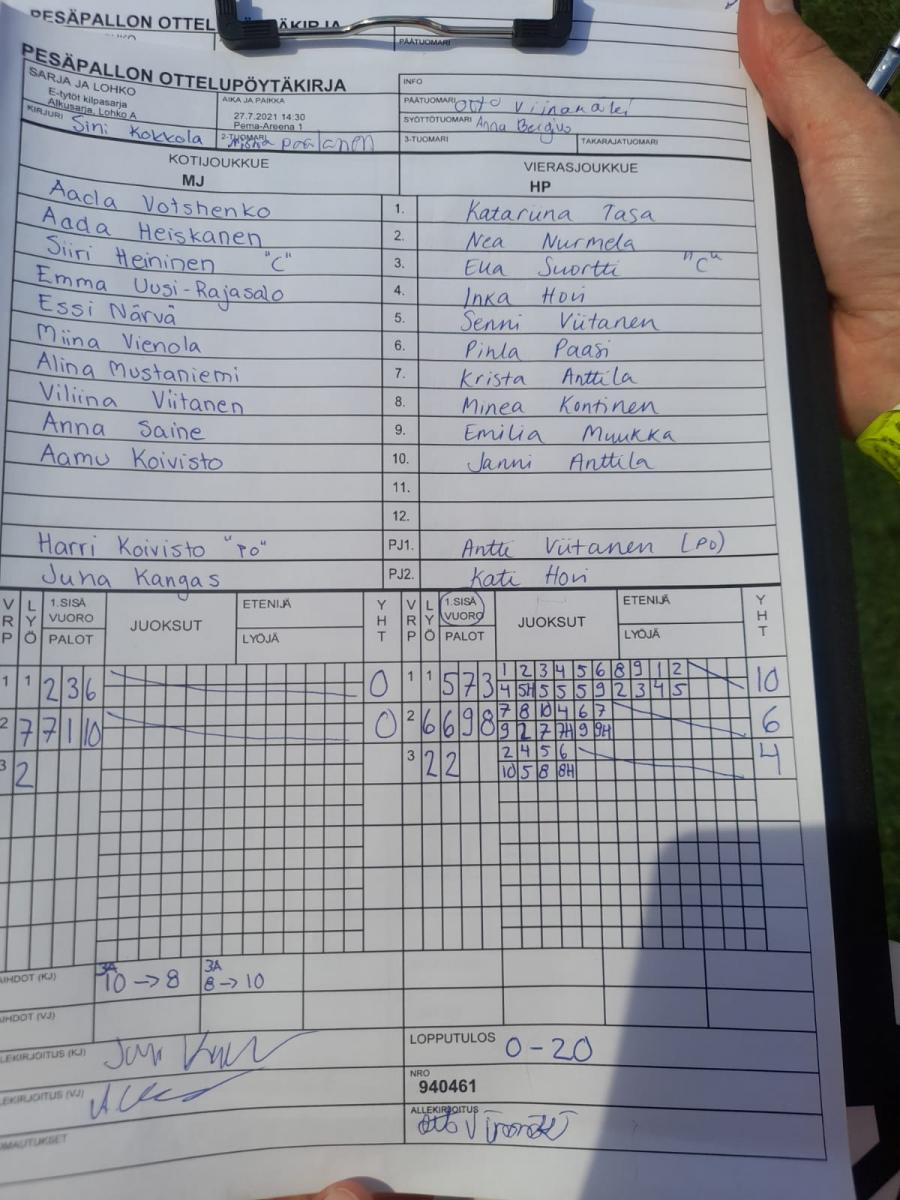 PESÄPALLON OTTELUPÖYTÄKIRJA
PÄÄTUOMARI
PESÄPALLON OTTELUPÖYTÄKIRJA
SARJA JA LOHKO
E-tytöt kilpasarja
Alkusarja, Lohko A
AIKA JA PAIKKA
27.7.2021 14:30
Pema-Areena 1
INFO
PÄÄTUOMARI Otto Viinamäki
SYÖTTÖTUOMARI Anna Bergius
KIRJURI Sini Kokkola
2-TUOMARI Paalanen
3-TUOMARI
TAKARAJATUOMARI
KOTIJOUKKUE
MJ
VIERASJOUKKUE
HP
Aada Votshenko 1. Katariina Tasa
Aada Heiskanen 2. Nea Nurmela
Siiri Heininen "C" 3. Eua Suortti "C"
Emma Uusi-Rajasalo 4. Inka Hovi
Essi Närvä 5. Senni Viitanen
Miina Vienola 6. Pihla Paasi
Alina Mustaniemi 7. Krista Anttila
Viliina Viitanen 8. Minea Kontinen
Anna Saine 9. Emilia Muukka
Aamu Koivisto 10. Janni Anttila
11.
12.
Harri Koivisto "PO" PJ1. Antti Viitanen (PO)
Juha Kangas PJ2. Kati Hovi
VRP LYÖ 1.SISÄ VUORO PALOT JUOKSUT ETENIJÄ LYÖJÄ YHT VRP LYÖ 1.SISÄ VUORO PALOT JUOKSUT ETENIJÄ LYÖJÄ YHT
1 1 2 3 6 0 1 1 5 7 3 1 2 3 4 5 6 8 9 1 2 10
4 5H 5 5 5 9 2 3 4 5
2 7 7 1 10 0 2 6 6 9 8 7 8 10 4 6 7 6
9 2 7 7H 9 9H
3 2 3 2 2 2 4 5 6 4
10 5 8 8H
AIHDOT (KJ) 3A 10 → 8 3A 8 → 10
AIHDOT (VJ)
LEKIRJOITUS (KJ)
LOPPUTULOS 0 - 20
LEKIRJOITUS (VJ)
NRO
940461
ALLEKIRJOITUS
OMAUTUKSET